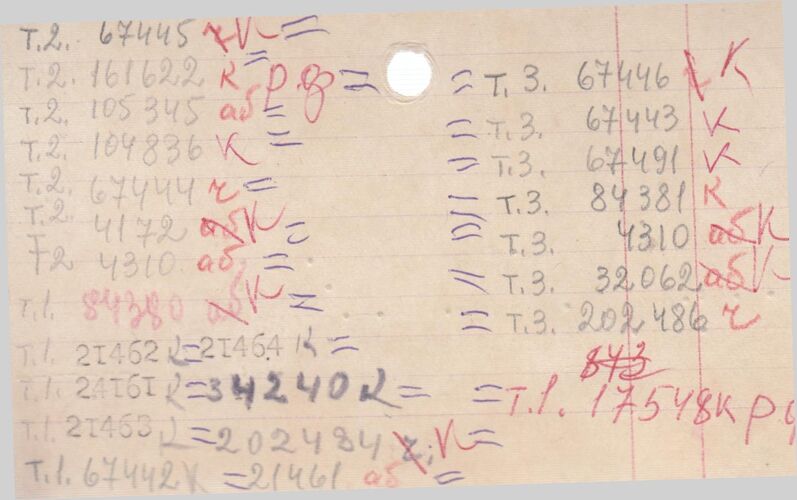 Т.2. 67445 чК =
Т.2. 161622 К рф =
Т.2. 105345 аб =
Т.2. 104836 К =
Т.2. 67444 ч =
Т.2. 4172 аб К =
Т2 4310 аб =
Т.1. 84380 аб К =
Т.1. 21462 К = 21464 К =
Т.1. 24161 К = 34240 К =
Т.1. 21463 К = 202484 ч. К =
Т.1. 67442 К = 21461 аб =
= Т.3. 67446 ч К
= Т.3. 67443 К
= Т.3. 67491 К
= Т.3. 84381 К
= Т.3. 4310 аб К
= Т.3. 32062 аб К
= Т.3. 202486 ч
843
= Т.1. 17548 К р